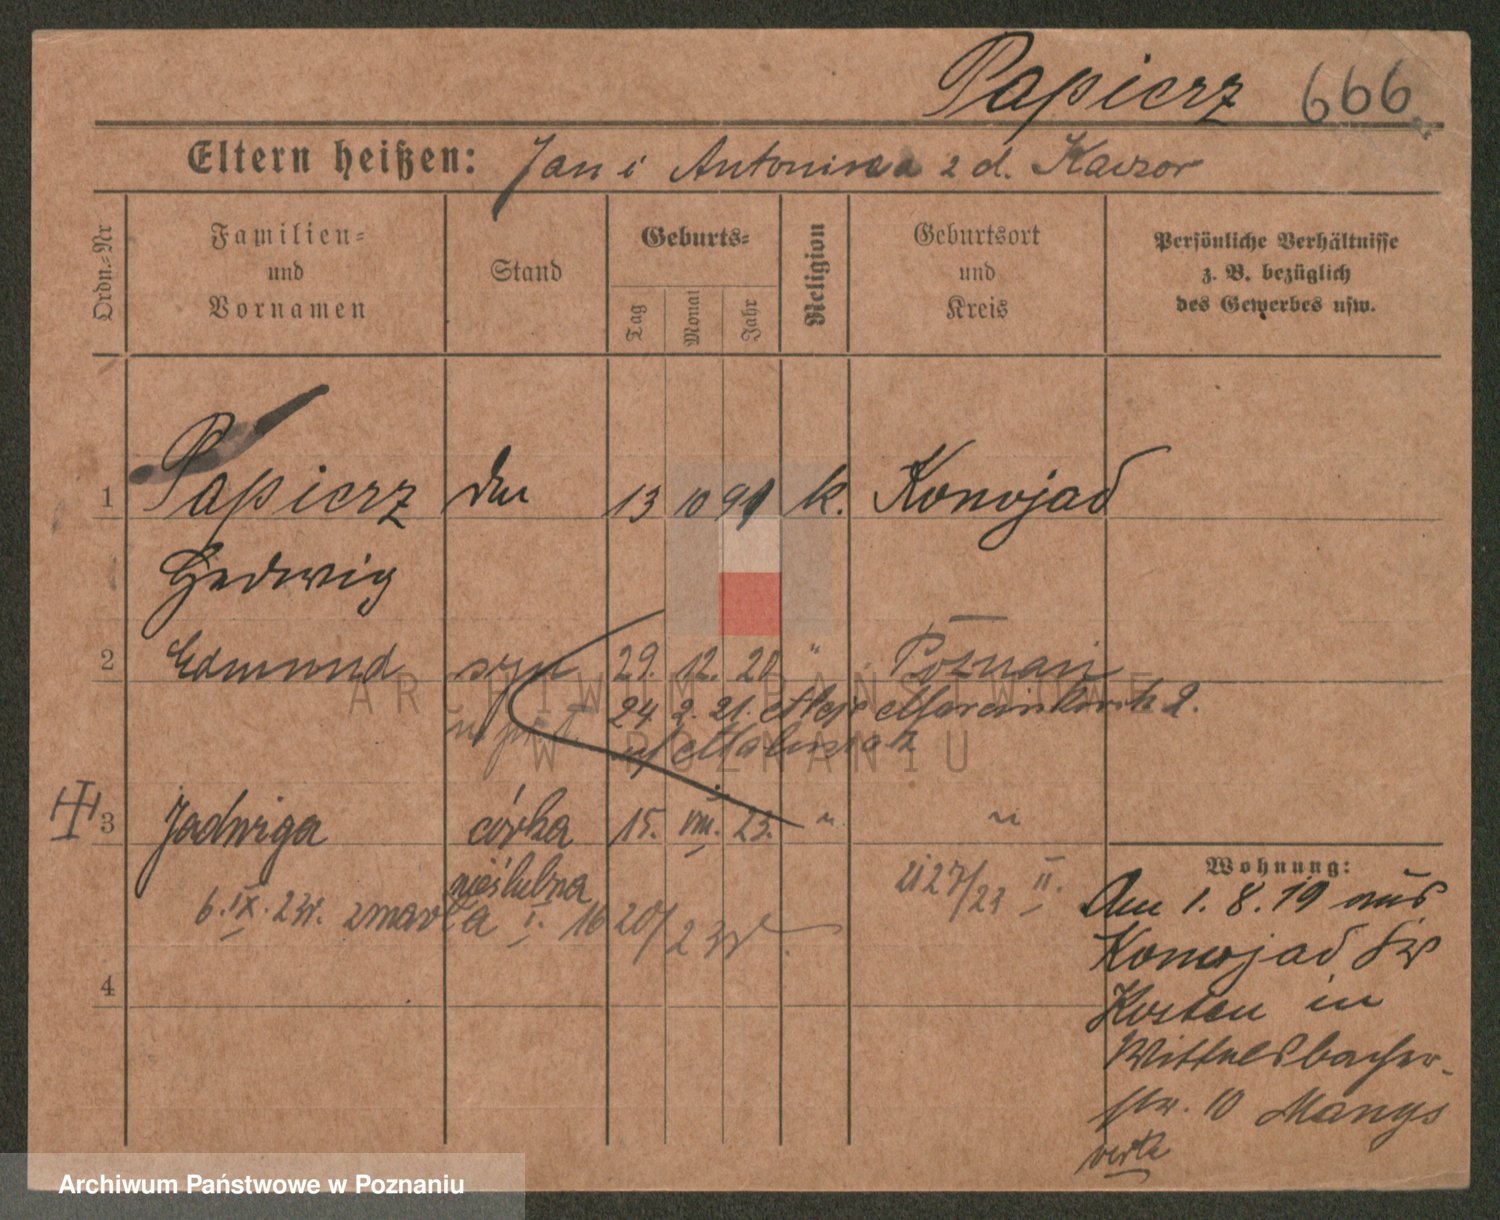 Papierz 666
Eltern heißen: Jan i Antonina z d. Kaczor
Ordn.-Nr
Familien-
und
Vornamen
Stand
Geburts-
Tag
Monat
Jahr
Religion
Geburtsort
und
Kreis
Persönliche Verhältnisse
z. B. bezüglich
des Gewerbes usw.
1 Papierz 13 10 91 k. Konojad
Hedwig
2 Edmund syn 29. 12. 20 " Poznań
24. 2. 21. Aleje Marcinkowsk 2.
3 Jadwiga córka 15. VIII. 23. " "
nieślubna
6. IX. 23r. zmarła I. 1620/23r.
27/23 II.
4
Wohnung:
Am 1. 8. 19 aus
Konojad Krs
Kosten in
Wittelsbacher-
str. 10
ARCHIWUM PAŃSTWOWE
W POZNANIU
Archiwum Państwowe w Poznaniu